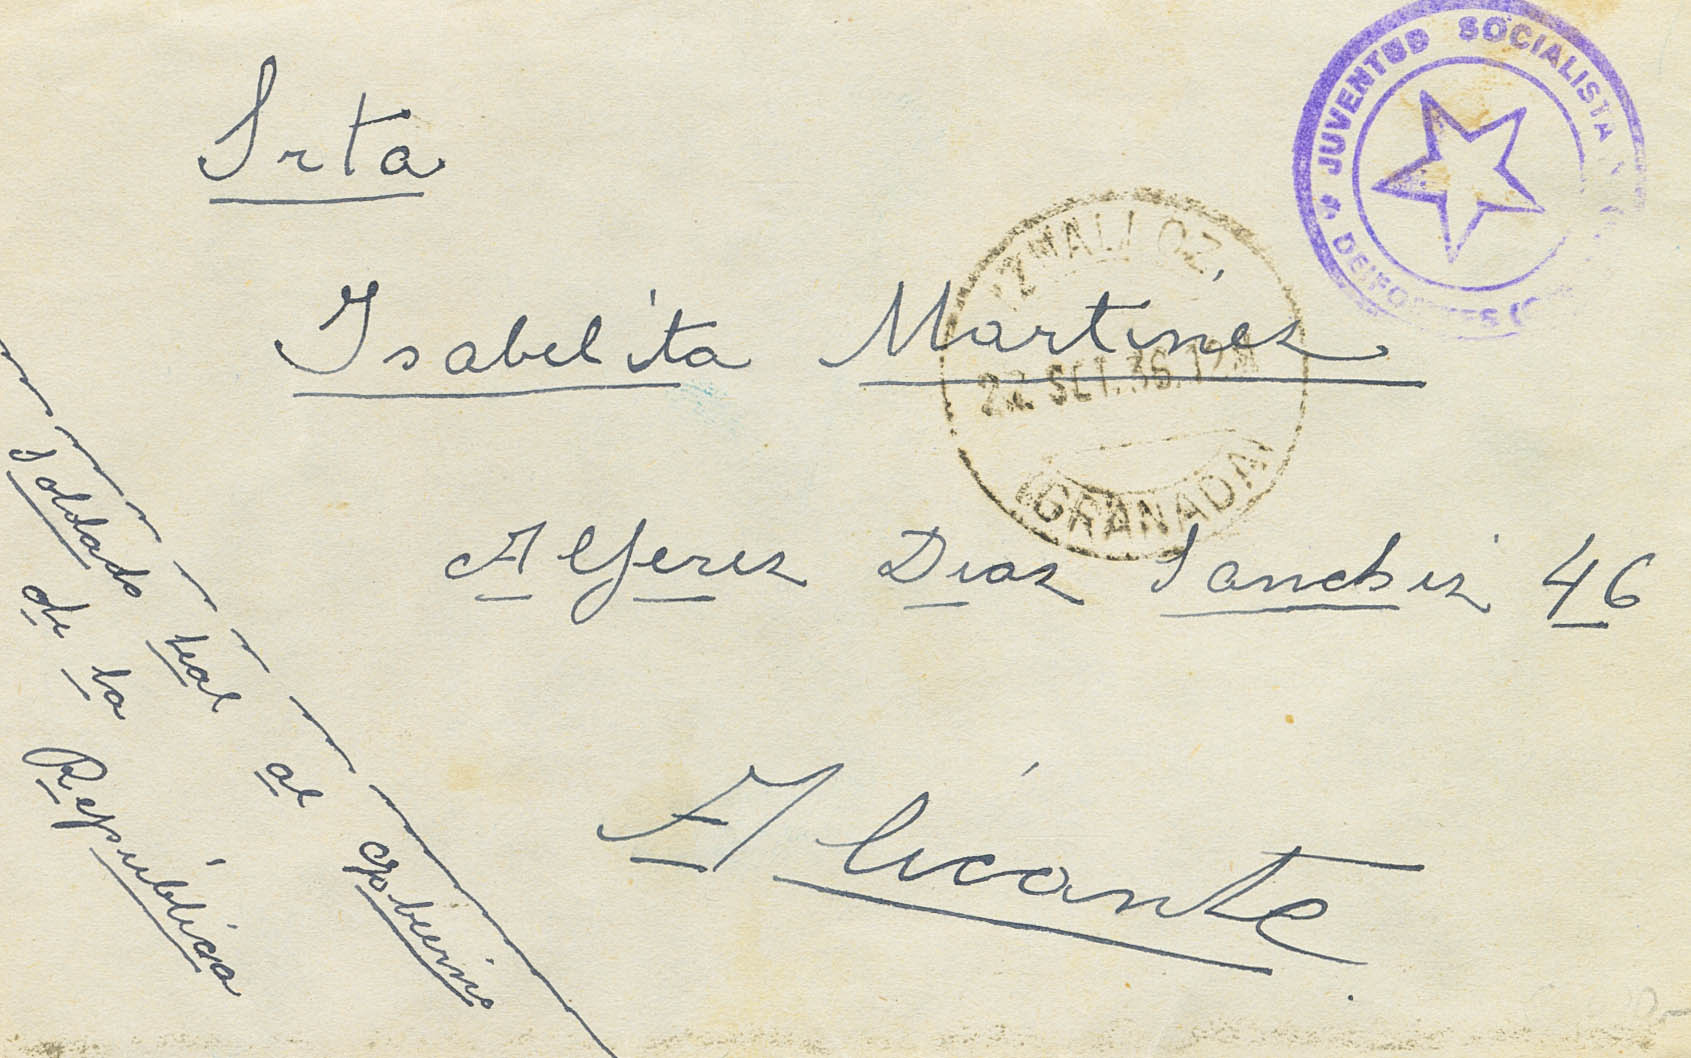 JUVENTUD SOCIALISTA
Srta
Isabelita Martínez
22 SET. 36. 12M
(GRANADA)
Alferez Diaz Sanchiz 46
Alicante
Soldado leal al gobierno
de la República